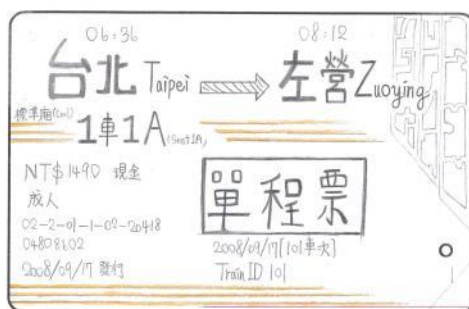 06:36 08:12
台北 Taipei 左營 Zuoying
標準廂(Car1)
1車1A (Seat1A)
NT$1490 現金
單程票
成人
02-2-01-1-02-20418
04808602
2008/09/17[101車次]
2008/09/17 發行
Train ID 101